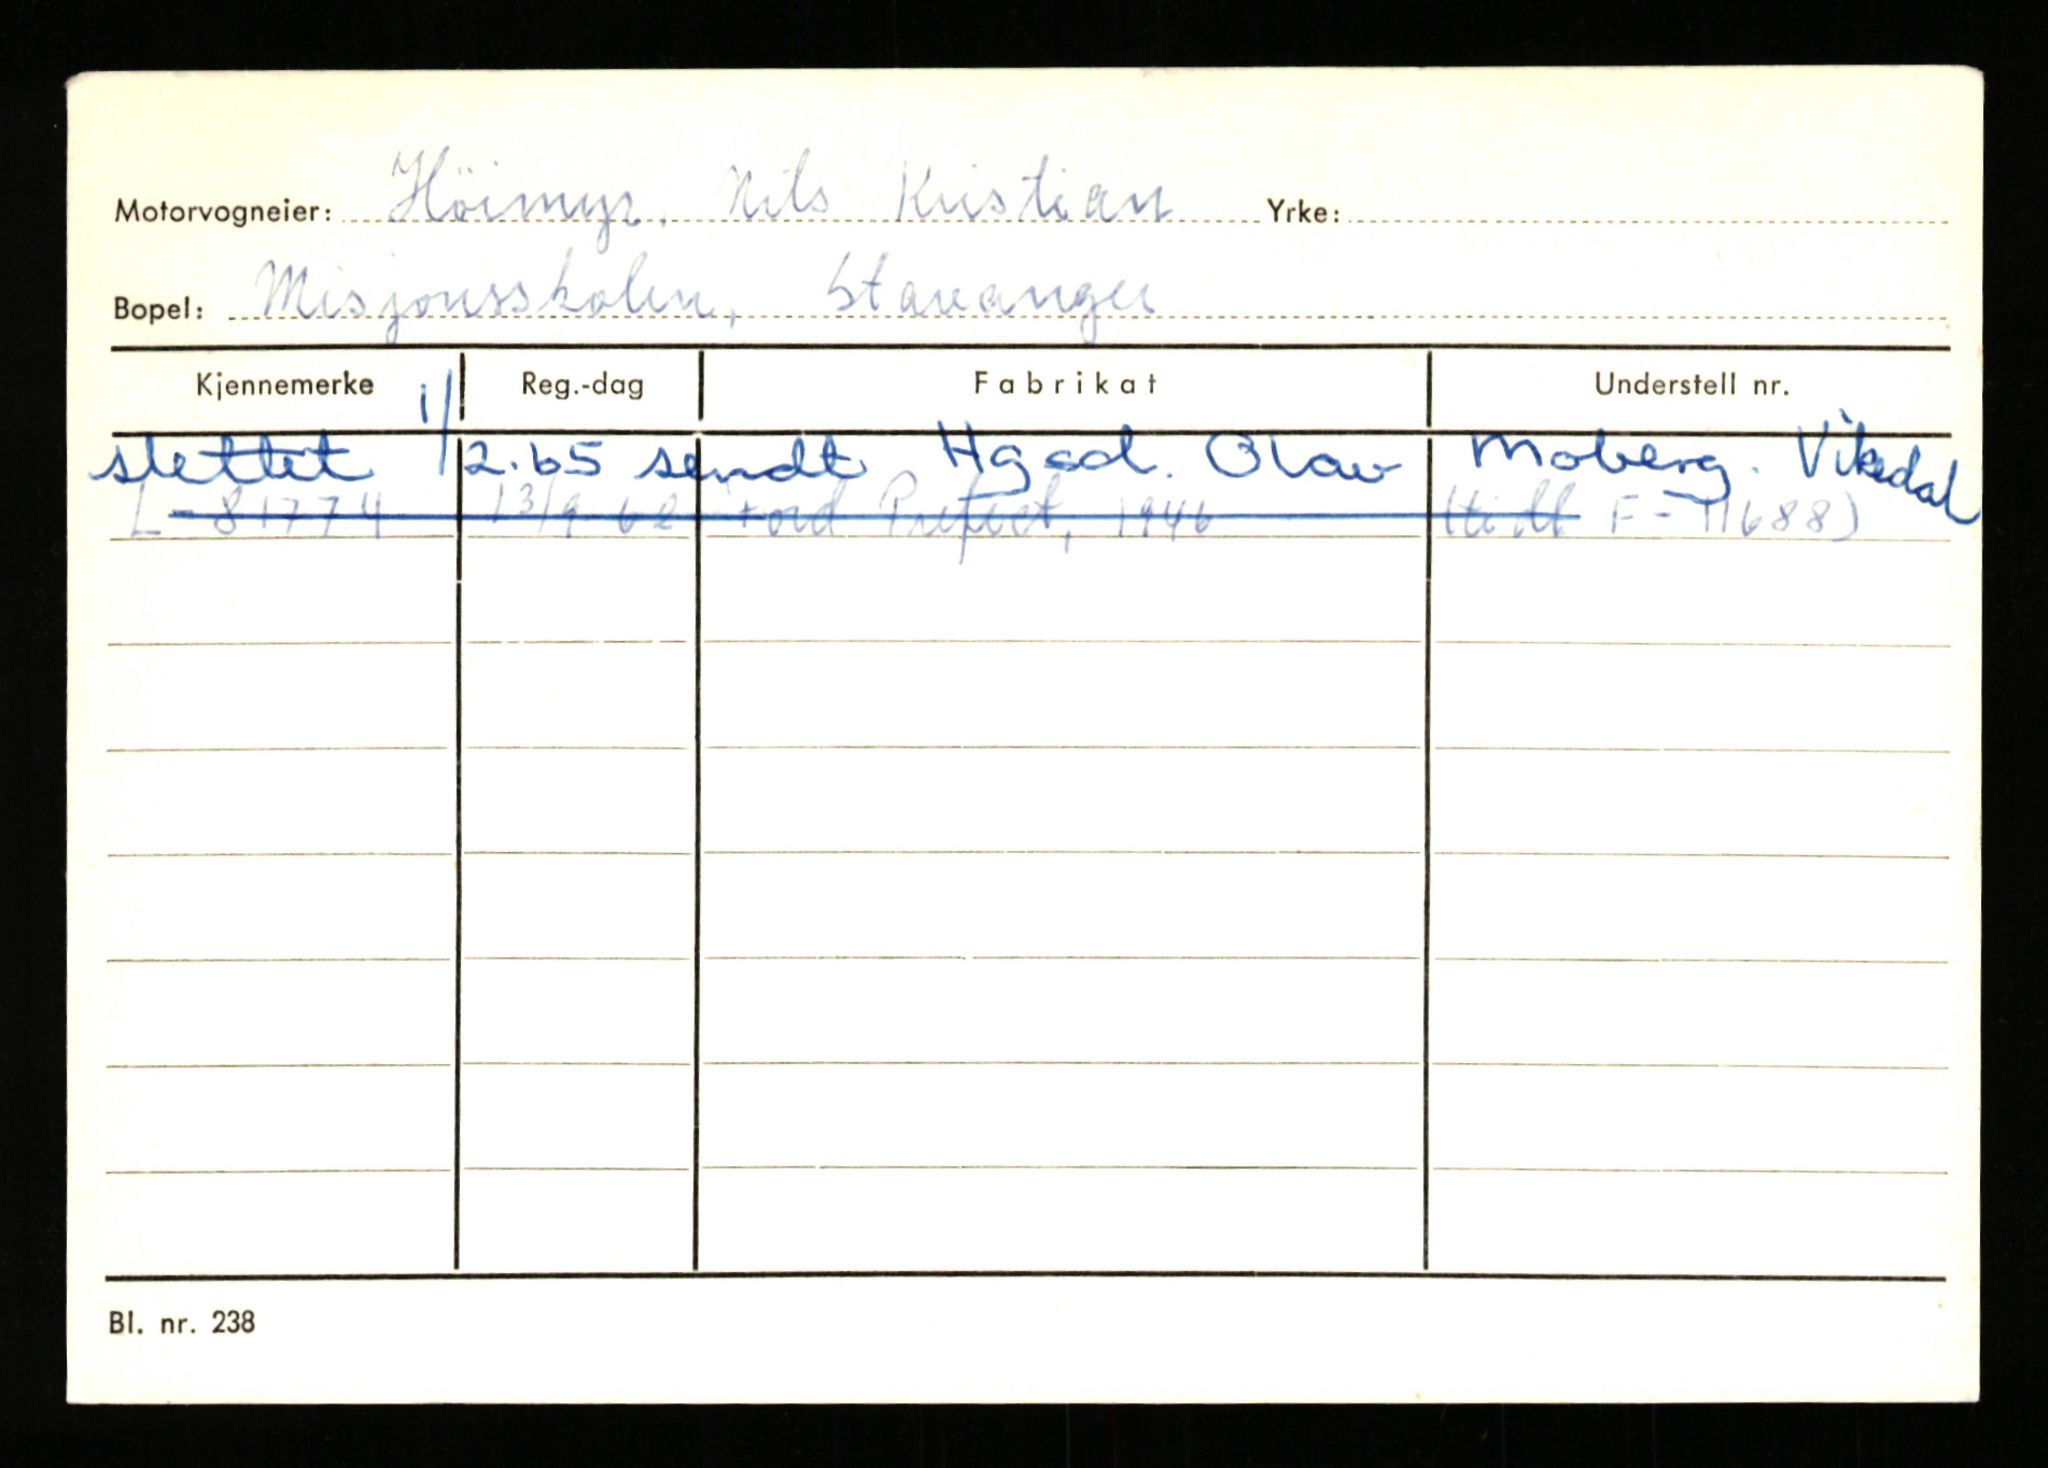 Motorvogneier: Höimyr, Nils Kristian Yrke:
Bopel: Misjonsskolen, Stavanger
Kjennemerke Reg.-dag Fabrikat Understell nr.
slettet 1/2.65 sendt Hgsd. Olav Moberg. Vikedal
L-81774 13/9 62 Ford Prefect, 1946 (tidl F-11688)
Bl. nr. 238